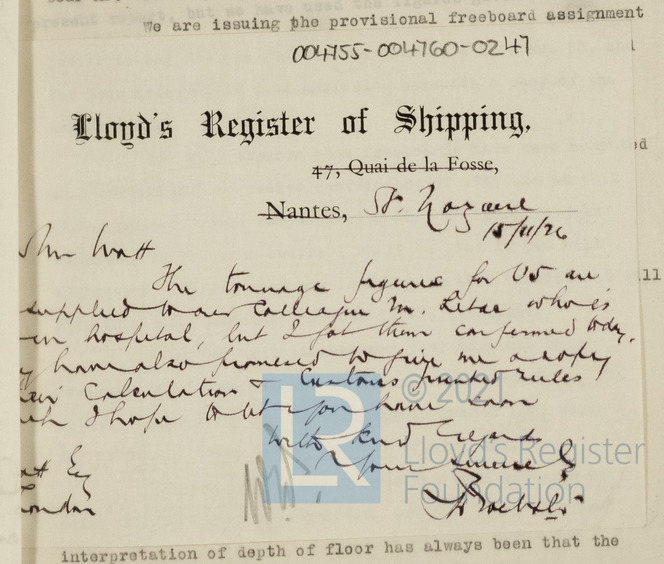 We are issuing the provisional freeboard assignment
004755-004760-0247
Lloyd's Register of Shipping,
47, Quai de la Fosse,
Nantes, St. Nazaire
15/11/26
Watt
The tonnage figures for U5 are
supplied to our Colleague Mr. who is
in hospital, but I got them confirmed today,
have also promised to give me a copy
Calculation & Customs printed rules
I hope to let you have soon
With kind regards
Yours sincerely
Esq
London
© 2021
LR
Lloyd's Register
Foundation
interpretation of depth of floor has always been that the